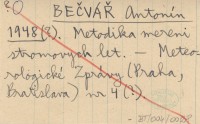 BEČVÁŘ Antonín
1948(?). Metodika měření
stromových let. — Meteo-
rologické Zprávy (Praha,
Bratislava) nr 4 (?)